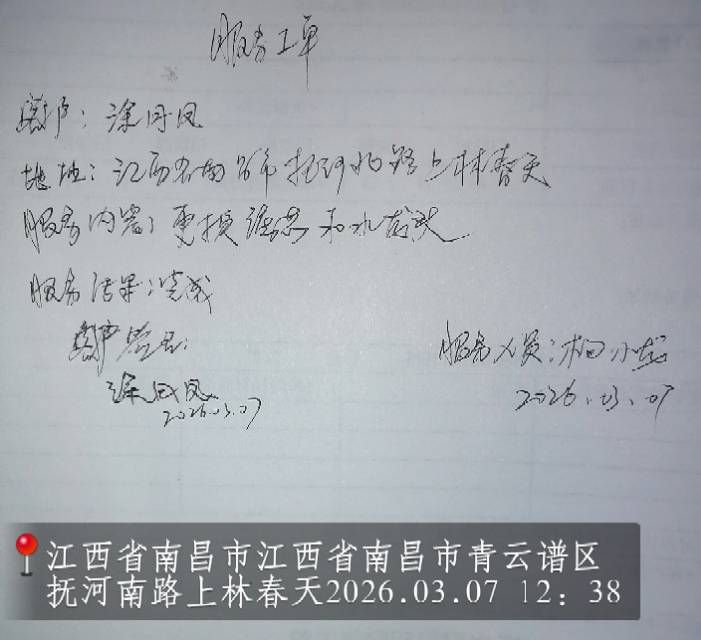 服务工单
客户：涂丹凤
地址：江西省南昌市抚河南路上林春天
服务内容：更换滤芯和水龙头
服务结果：完成
客户签名：
涂丹凤
2026.03.07
服务人员：杨小龙
2026.03.07
江西省南昌市江西省南昌市青云谱区
抚河南路上林春天2026.03.07 12：38